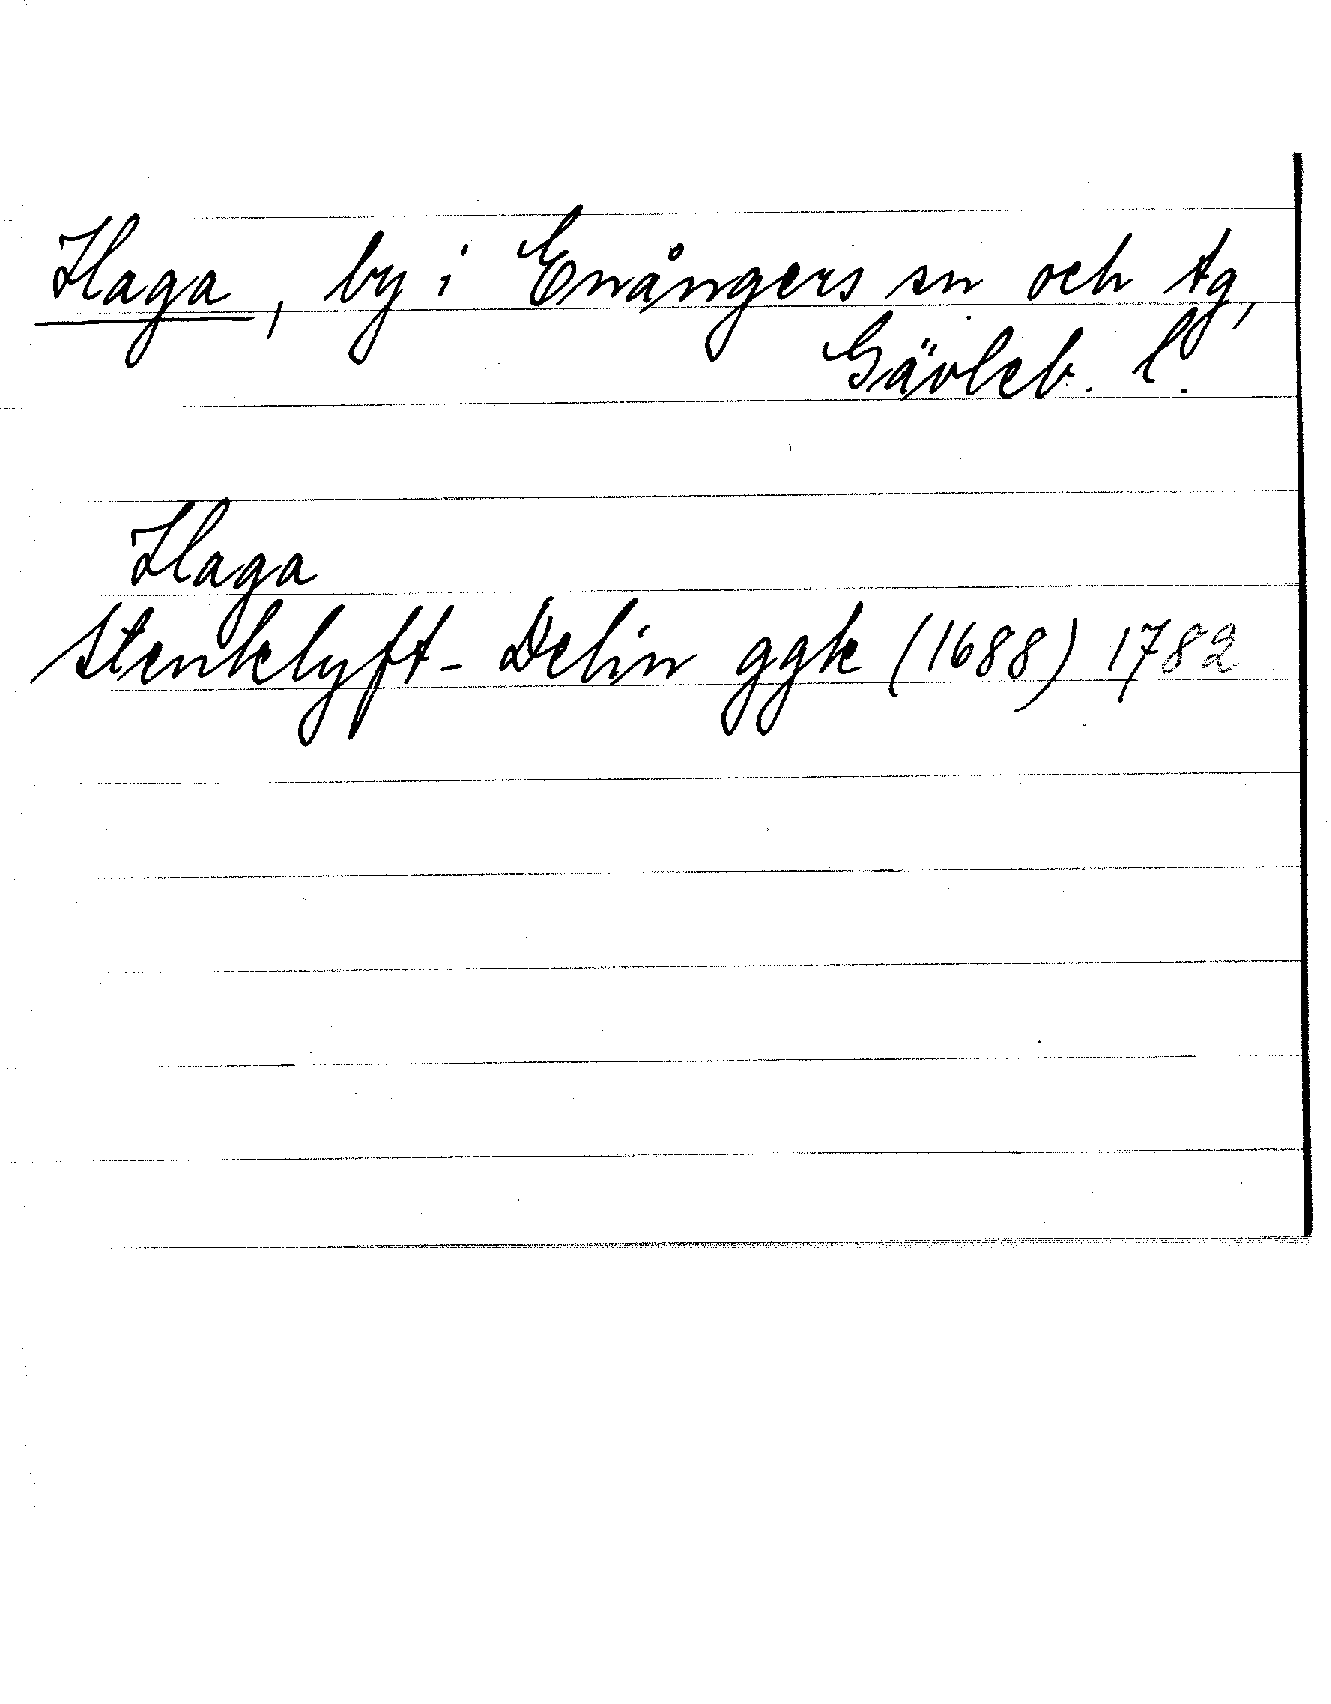 Haga, by i Enångers sn och tg,
Gävleb. l.
Haga
Stenklyft - Delin ggk (1688) 1782